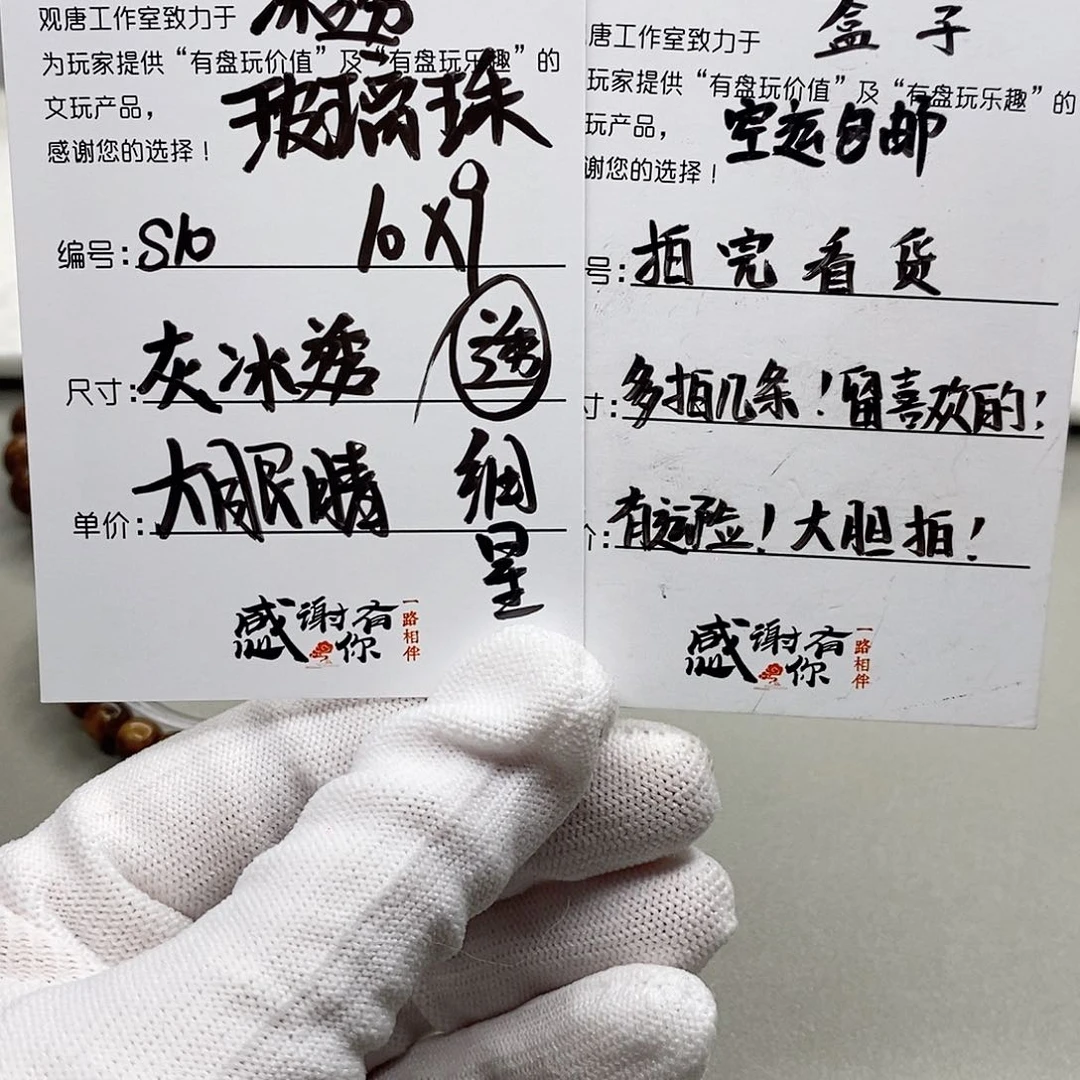 观唐工作室致力于
为玩家提供“有盘玩价值”及“有盘玩乐趣”的
文玩产品，
感谢您的选择！
玻璃珠
编号：S10 10X9
尺寸：灰冰 送
单价：大眼睛 细
星
感谢有你
一路相伴
盒子
唐工作室致力于
玩家提供“有盘玩价值”及“有盘玩乐趣”的
空运包邮
玩产品，
谢您的选择！
号：拍完看货
寸：多拍几条！留喜欢的！
有运险！大胆拍！
感谢有你
一路相伴